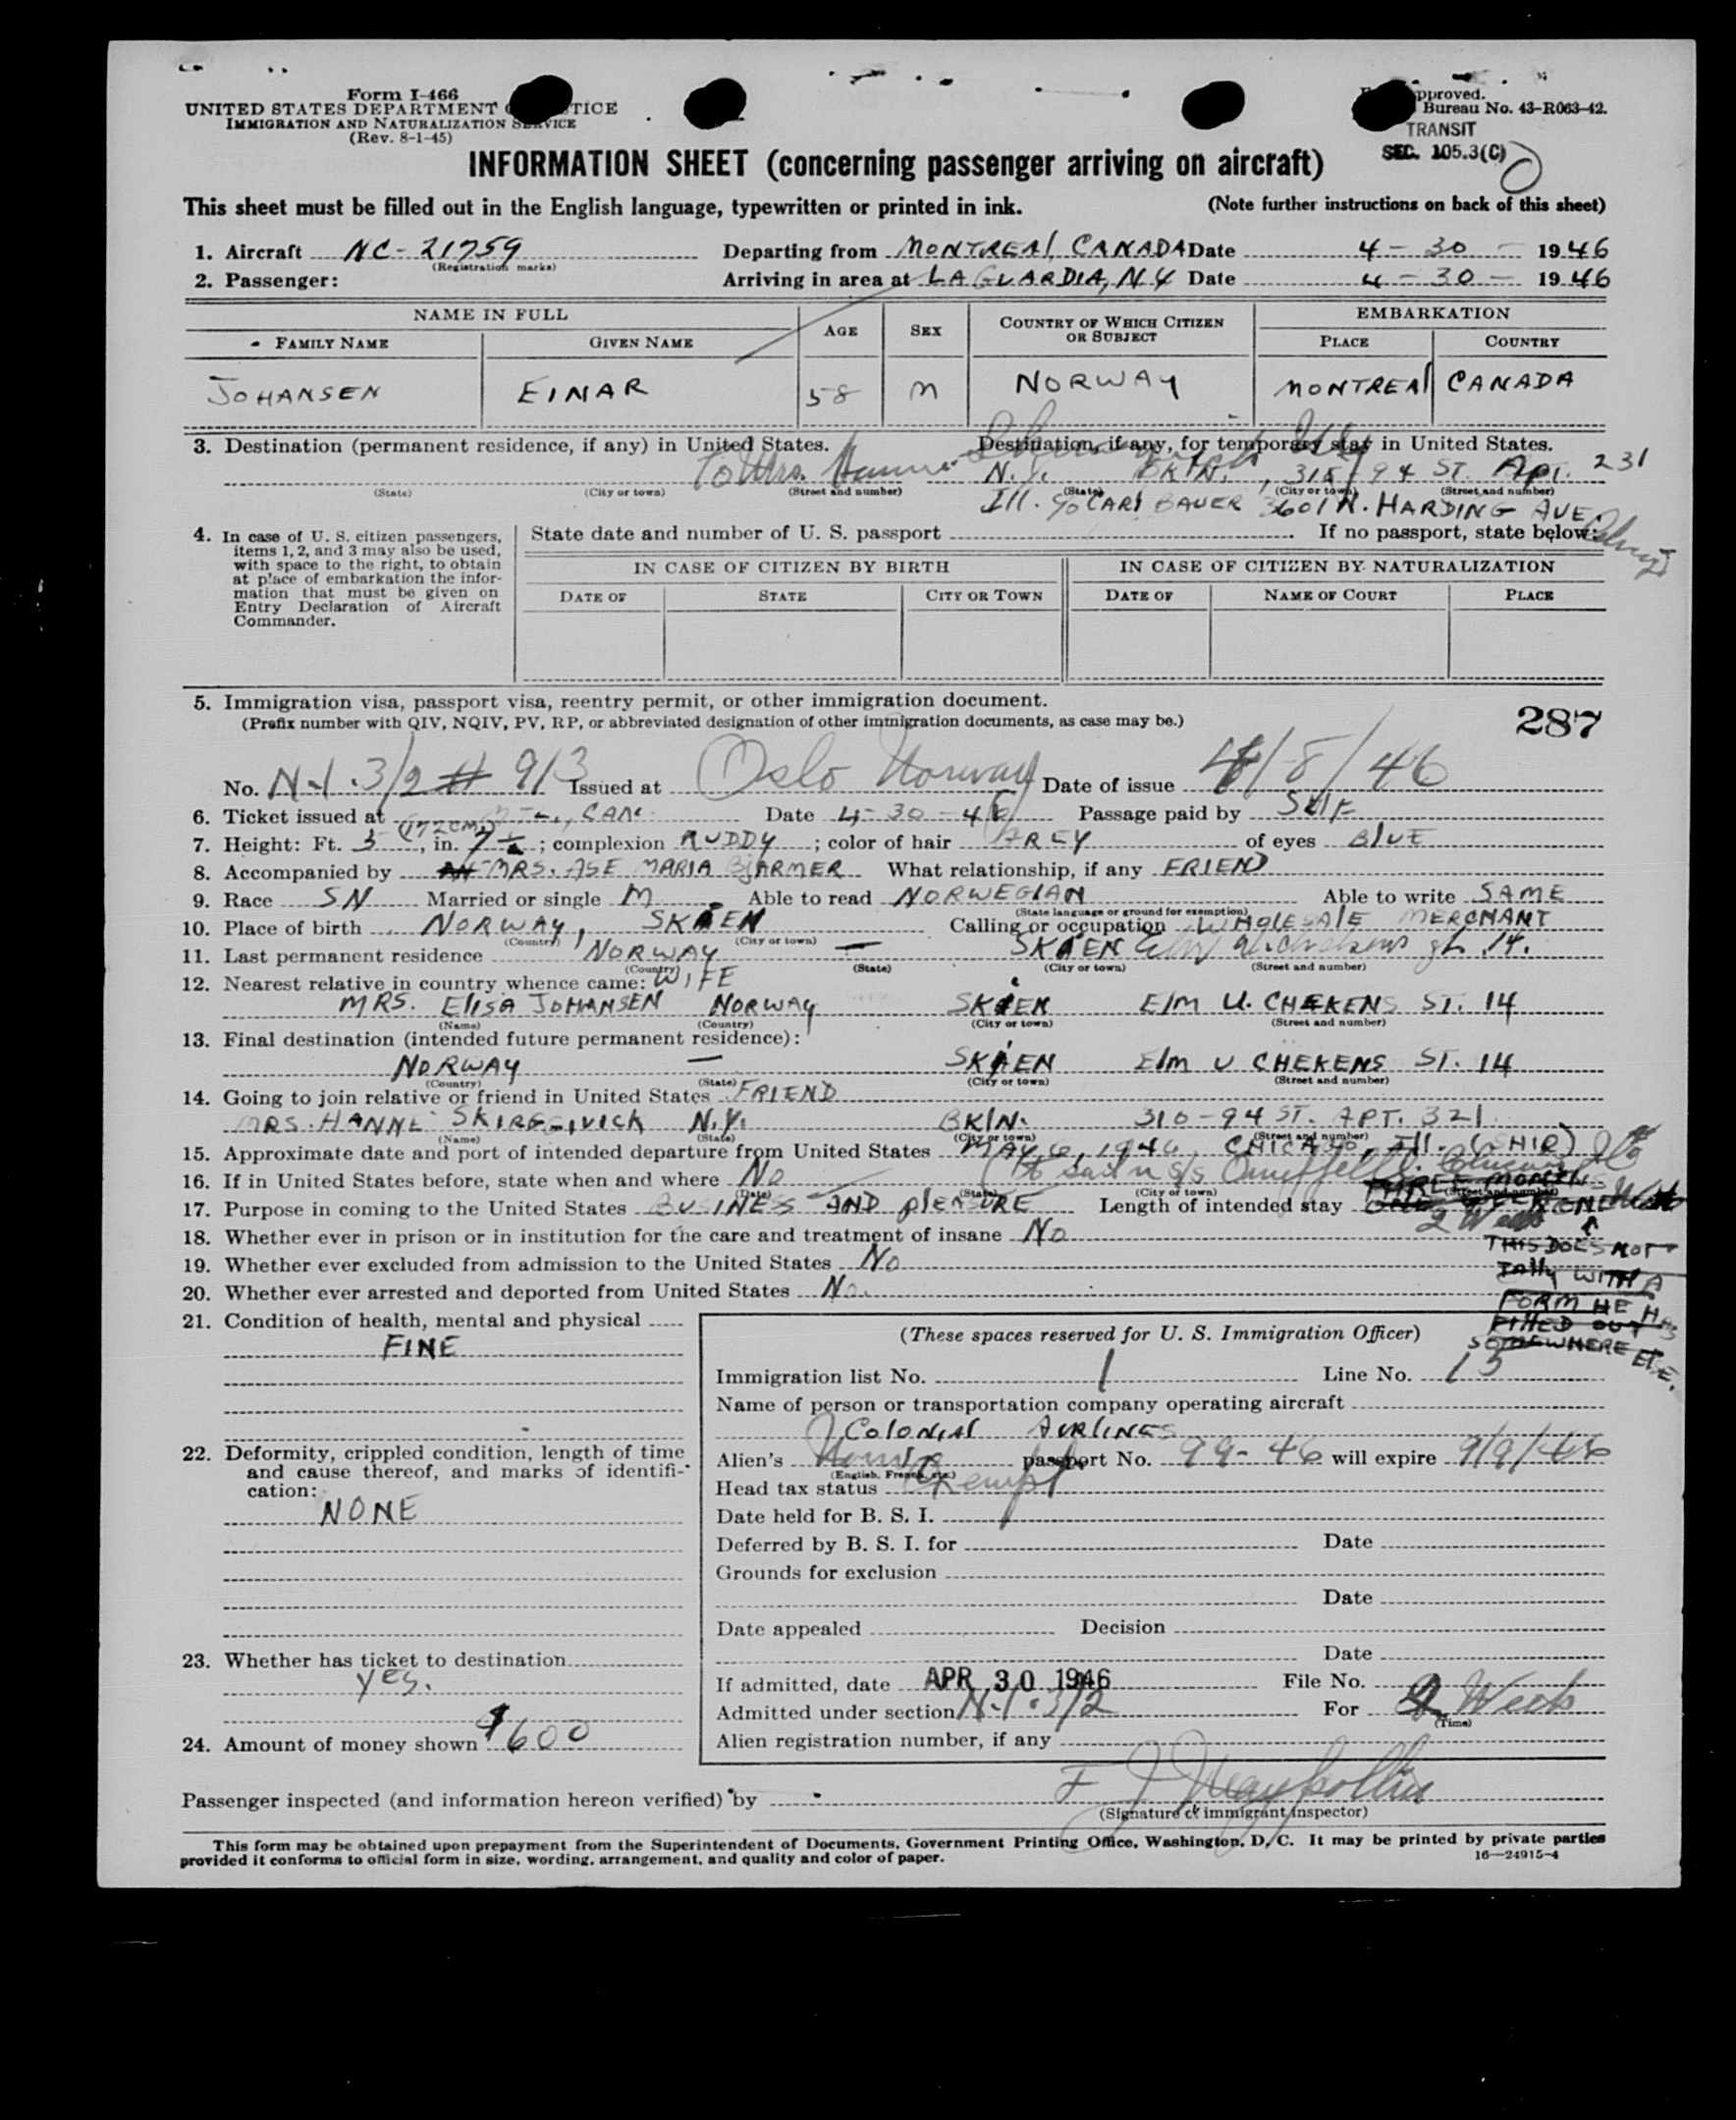 Form I-466
UNITED STATES DEPARTMENT
IMMIGRATION AND NATURALIZATION SERVICE
(Rev. 8-1-45)
pproved.
Bureau No. 43-R063-42.
TRANSIT
SEC. 105.3(C)
INFORMATION SHEET (concerning passenger arriving on aircraft)
This sheet must be filled out in the English language, typewritten or printed in ink. (Note further instructions on back of this sheet)
1. Aircraft NC-21759 Departing from MONTREAL, CANADA Date 4-30- 1946
(Registration marks)
2. Passenger: Arriving in area at LAGUARDIA, N.Y Date 4-30- 1946
NAME IN FULL AGE SEX COUNTRY OF WHICH CITIZEN OR SUBJECT EMBARKATION
FAMILY NAME GIVEN NAME PLACE COUNTRY
JOHANSEN EINAR 58 M NORWAY MONTREAL CANADA
3. Destination (permanent residence, if any) in United States. Destination, if any, for temporary stay in United States.
To Mrs. N.Y. BKLN., 94 ST. APT. 231
(State) (City or town) (Street and number) (State) (City or town) (Street and number)
Ill. c/o CARL BAUER 3601 N. HARDING AVE.
4. In case of U. S. citizen passengers, items 1, 2, and 3 may also be used, with space to the right, to obtain at place of embarkation the information that must be given on Entry Declaration of Aircraft Commander.
State date and number of U. S. passport If no passport, state below:
IN CASE OF CITIZEN BY BIRTH IN CASE OF CITIZEN BY NATURALIZATION
DATE OF STATE CITY OR TOWN DATE OF NAME OF COURT PLACE
5. Immigration visa, passport visa, reentry permit, or other immigration document.
(Prefix number with QIV, NQIV, PV, RP, or abbreviated designation of other immigration documents, as case may be.)
287
No. N-1.3/2 # 913 Issued at Oslo Norway Date of issue 4/8/46
6. Ticket issued at CAN. Date 4-30-46 Passage paid by SELF
7. Height: Ft. 5 (172 CM), in. 7 ½; complexion RUDDY; color of hair GREY of eyes BLUE
8. Accompanied by MRS. ASE MARIA BJARMER What relationship, if any FRIEND
9. Race SN Married or single M Able to read NORWEGIAN Able to write SAME
(State language or ground for exemption)
10. Place of birth NORWAY, SKIEN Calling or occupation WHOLESALE MERCHANT
(Country) (City or town)
11. Last permanent residence NORWAY — SKIEN 14.
(Country) (State) (City or town) (Street and number)
12. Nearest relative in country whence came: WIFE
MRS. ELISA JOHANSEN NORWAY SKIEN ELM U. CHEKENS ST. 14
(Name) (Country) (City or town) (Street and number)
13. Final destination (intended future permanent residence):
NORWAY — SKIEN ELM U CHEKENS ST. 14
(Country) (State) (City or town) (Street and number)
14. Going to join relative or friend in United States FRIEND
MRS. HANNE N.Y. BKLN. 310-94 ST. APT. 321
(Name) (State) (City or town) (Street and number)
15. Approximate date and port of intended departure from United States MAY 6, 1946, CHICAGO, Ill. (SHIP)
16. If in United States before, state when and where No
(Date) (State) (City or town) (Street and number)
17. Purpose in coming to the United States BUSINESS AND PLEASURE Length of intended stay
THREE MONTHS
2 Weeks
18. Whether ever in prison or in institution for the care and treatment of insane No
THIS DOES NOT
19. Whether ever excluded from admission to the United States No
TALLY WITH A
20. Whether ever arrested and deported from United States No.
FORM HE HAS
FILLED OUT
SOMEWHERE ELSE.
21. Condition of health, mental and physical
FINE
22. Deformity, crippled condition, length of time and cause thereof, and marks of identification:
NONE
23. Whether has ticket to destination
YES.
24. Amount of money shown $600
(These spaces reserved for U. S. Immigration Officer)
Immigration list No. 1 Line No. 15
Name of person or transportation company operating aircraft
COLONIAL AIRLINES
Alien's passport No. 99-46 will expire 9/9/46
(English, French, etc.)
Head tax status Exempt
Date held for B. S. I.
Deferred by B. S. I. for Date
Grounds for exclusion
Date
Date appealed Decision
Date
If admitted, date APR 30 1946 File No.
Admitted under section N-1.3/2 For 2 Weeks
(Time)
Alien registration number, if any
Passenger inspected (and information hereon verified) by
(Signature of immigrant inspector)
This form may be obtained upon prepayment from the Superintendent of Documents, Government Printing Office, Washington, D. C. It may be printed by private parties
provided it conforms to official form in size, wording, arrangement, and quality and color of paper.
16—24915-4